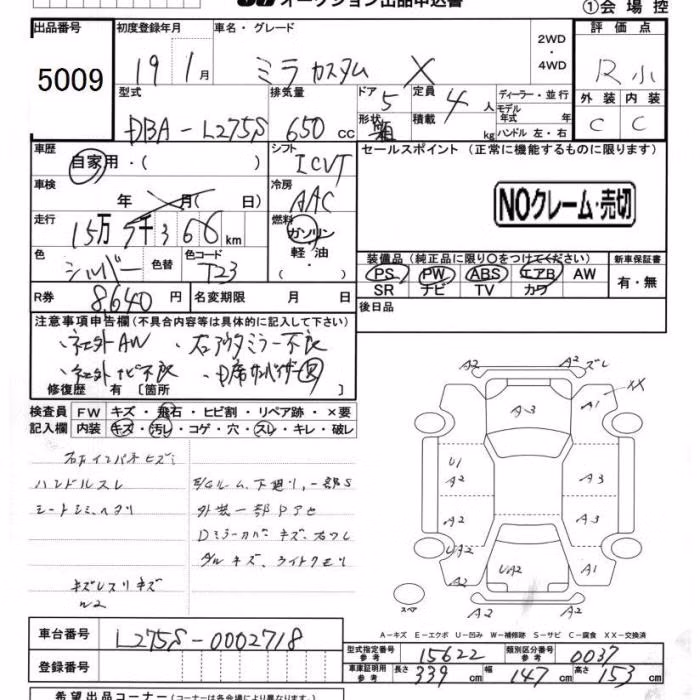 オークション出品申込書
①会場控
出品番号 初度登録年月 車名・グレード 2WD・4WD 評価点
5009 19 1月 ミラ カスタム X R 小
型式 排気量 ドア 5 定員 4人 ディーラー・並行 外装 内装
DBA-L275S 650cc 形状 箱 積載 kg モデル年式 年 ハンドル 左・右 C C
車歴 自家用・( ) シフト ICVT セールスポイント (正常に機能するものに限ります)
車検 年 月( 日) 冷房 AAC
NOクレーム・売切
走行 15万 千366km 燃料 ガソリン 軽油・( )
色 シルバー 色替 色コード T23
装備品(純正品に限り〇をつけてください) 新車保証書
PS PW ABS エアB AW 有・無
SR ナビ TV カワ
R券 8,640円 名変期限 月 日 後日品
注意事項申告欄(不具合内容等は具体的に記入して下さい)
・社外AW ・右アウタミラー不良
・社外ナビ不良
修復歴 有【箇所 】
検査員 FW キズ・飛石・ヒビ割・リペア跡・×要
記入欄 内装 キズ・汚レ・コゲ・穴・スレ・キレ・破レ
右インパネヒズミ
ハンドルスレ E/Gルーム、下廻リ、一部S
シートシミ、ヘタリ 外装一部Pアセ
Dミラーカバーキズ、右ワレ
キズ、ライトクモリ
キズ
A2 A2 ズレ
A3 A1 XX
U1
A2 A3
A2 A3
UA2 UA2 A1
A2
A2 A2
スペア
A-キズ E-エクボ U-凹み W-補修跡 S-サビ C-腐食 XX-交換済
車台番号 L275S-0002718
型式指定番号 参考 15622 類別区分番号 参考 0037
登録番号 車庫証明用 参考 長さ 339cm 幅 147cm 高さ 153cm
希望出品コーナー(コーナーは各会場によ